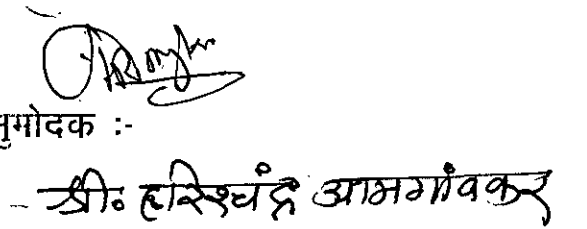 अनुमोदक :-
- श्री. हरिश्चंद्र आमगांवकर